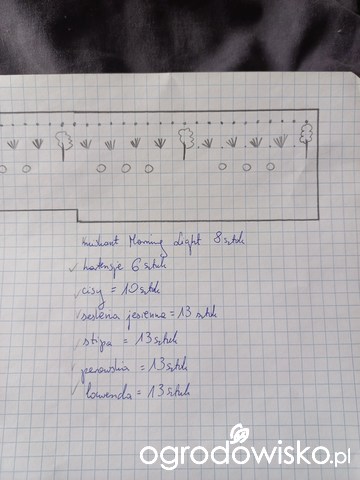 miskant Morning Light 8 sztuk
hortensje 6 sztuk
cisy = 10 sztuk
seslena jesienna = 13 sztuk
stipa = 13 sztuk
perowskia = 13 sztuk
lawenda = 13 sztuk
ogrodowisko.pl